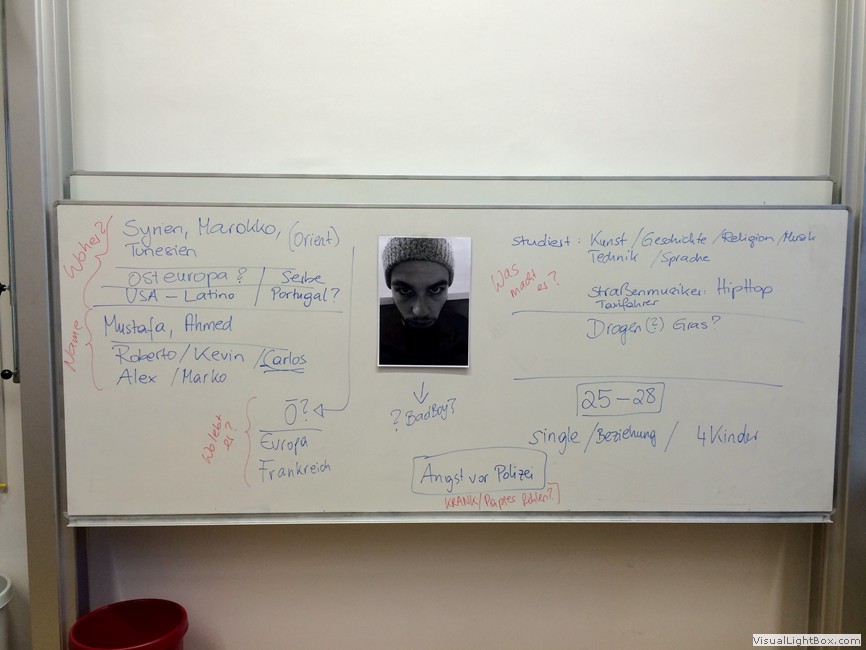 Woher?
Syrien, Marokko, (Orient)
Tunesien
Osteuropa? / Serbe
USA – Latino / Portugal?
Name
Mustafa, Ahmed
Roberto / Kevin / Carlos
Alex / Marko
Wo lebt er?
Ö?
Europa
Frankreich
? BadBoy?
Angst vor Polizei
KRANK / Papier fehlen?
Was
macht
er?
studiert: Kunst / Geschichte / Religion / Musik
Technik / Sprache
Straßenmusiker: HipHop
Taxifahrer
Drogen (?) Gras?
25–28
single / Beziehung / 4 Kinder
VisualLightBox.com